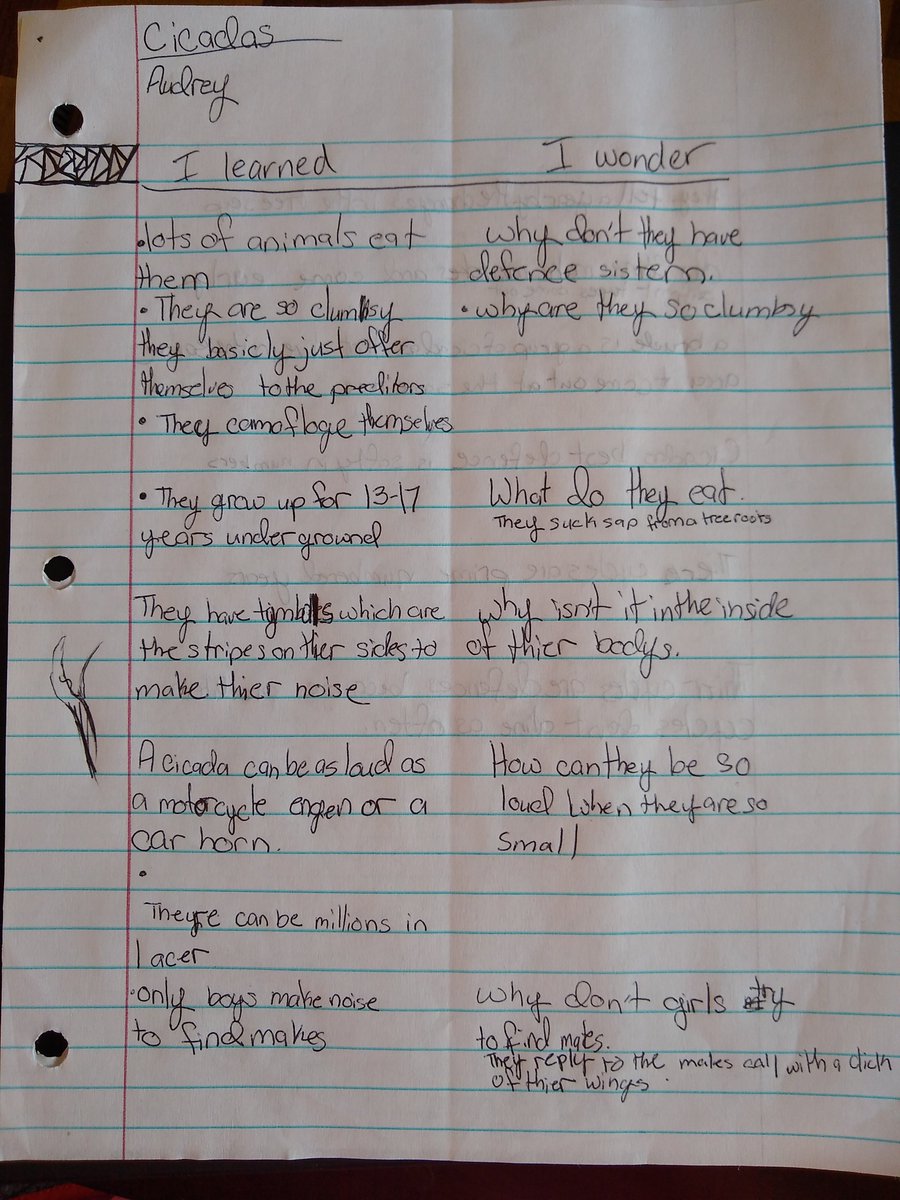 Cicadas
Audrey
I learned
I wonder
•lots of animals eat
them
• They are so clumbsy
they basicly just offer
themselvs to the preditors
• They camofloge themselves
• They grow up for 13-17
years underground
They have tymbals which are
the stripes on thier sides to
make thier noise
A cicada can be as loud as
a motorcycle engen or a
car horn.
•
Theyre can be millions in
1 acer
•only boys make noise
to find makes
why don't they have
defence sistem.
• why are they so clumbsy
What do they eat.
They suck sap from a tree roots
why isn't it in the inside
of thier bodys.
How can they be so
loud when they are so
small
why don't girls try
to find mates.
They reply to the males call with a click
of thier wings.